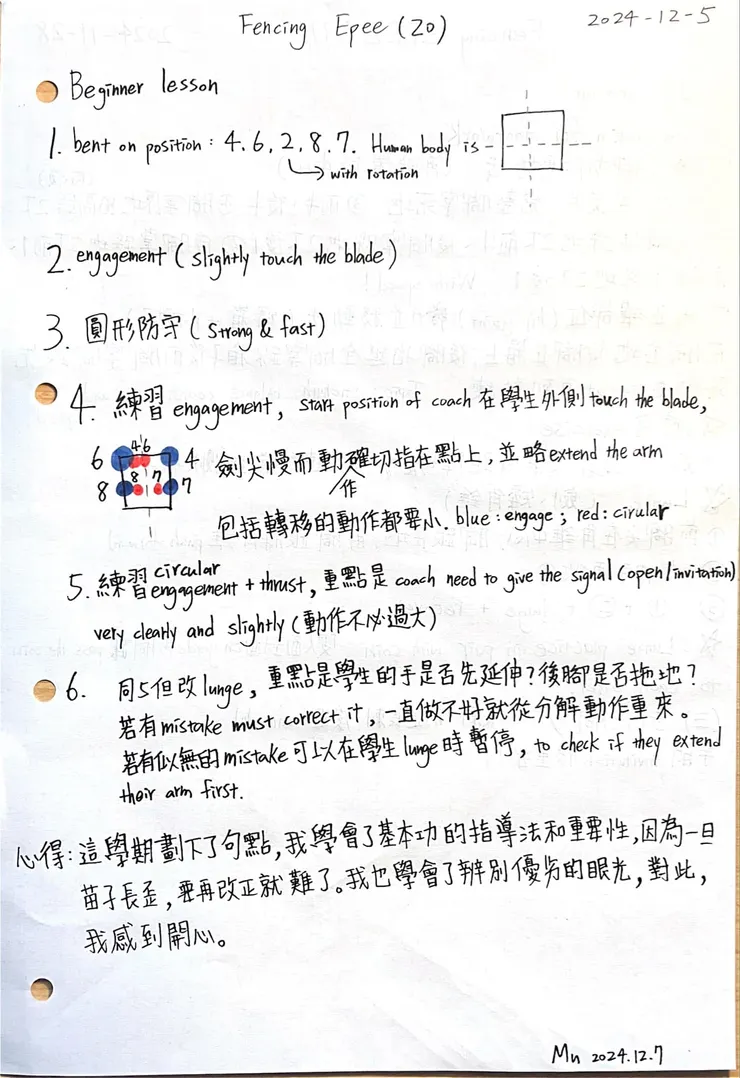 Fencing Epee (20)
2024-12-5
Beginner lesson
1. bent on position : 4. 6. 2. 8. 7. Human body is
with rotation
2. engagement ( slightly touch the blade )
3. 圓形防守 ( strong & fast )
4. 練習 engagement, start position of coach 在學生外側 touch the blade,
劍尖慢而動作確切指在點上, 並略 extend the arm
包括轉移的動作都要小. blue : engage ; red : cirular
4 6
6 4
8 7
8 7
5. 練習 circular engagement + thrust, 重點是 coach need to give the signal (open/invitation)
very clearly and slightly (動作不必過大)
6. 同5但改 lunge, 重點是學生的手是否先延伸? 後腳是否拖地?
若有 mistake must correct it, 一直做不好就從分解動作重來。
若有似無的 mistake 可以在學生 lunge 時暫停, to check if they extend
their arm first.
心得: 這學期劃下了句點, 我學會了基本功的指導法和重要性, 因為一旦
苗子長歪, 要再改正就難了。我也學會了辨別優劣的眼光, 對此,
我感到開心。
Mu 2024.12.7